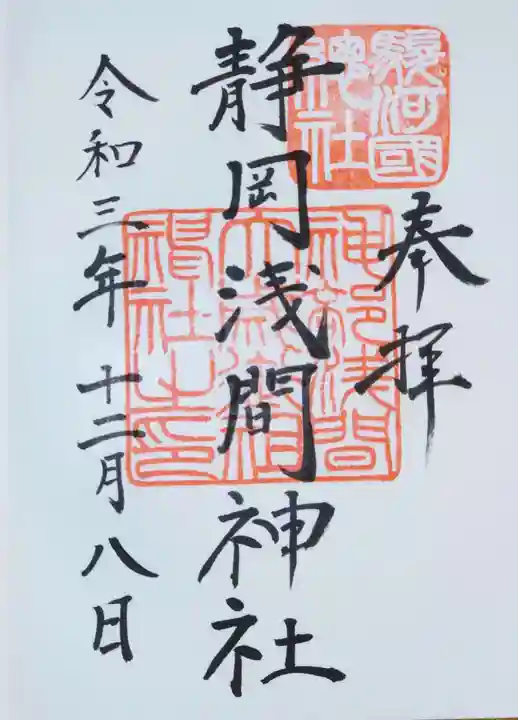 奉拝
駿河國
總社
静岡浅間神社
神部浅間
大歳御祖
神社之印
令和三年十二月八日